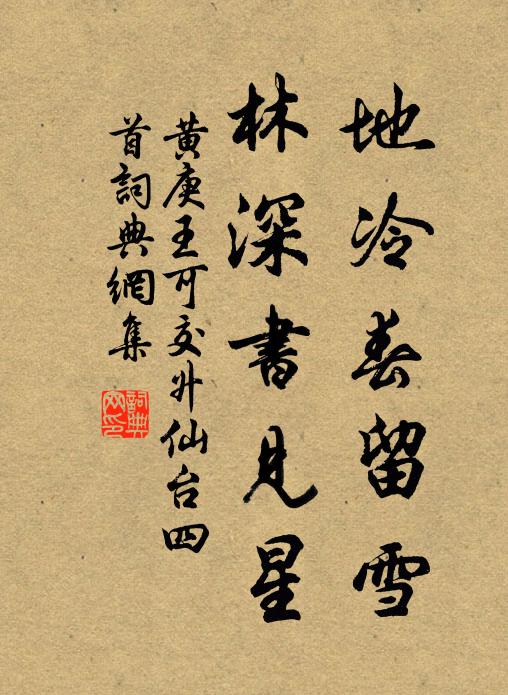 地冷春留雪
林深書見星
黃庚王可交升仙台四
首詞典網集
詞典
网印